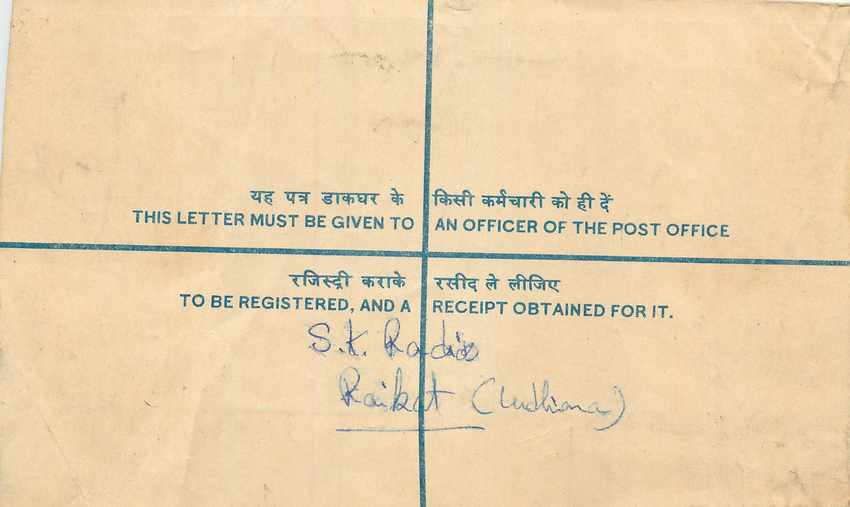 यह पत्र डाकघर के किसी कर्मचारी को ही दें
THIS LETTER MUST BE GIVEN TO AN OFFICER OF THE POST OFFICE
रजिस्ट्री कराके रसीद ले लीजिए
TO BE REGISTERED, AND A RECEIPT OBTAINED FOR IT.
S.K. Radios
Raikot (Ludhiana)